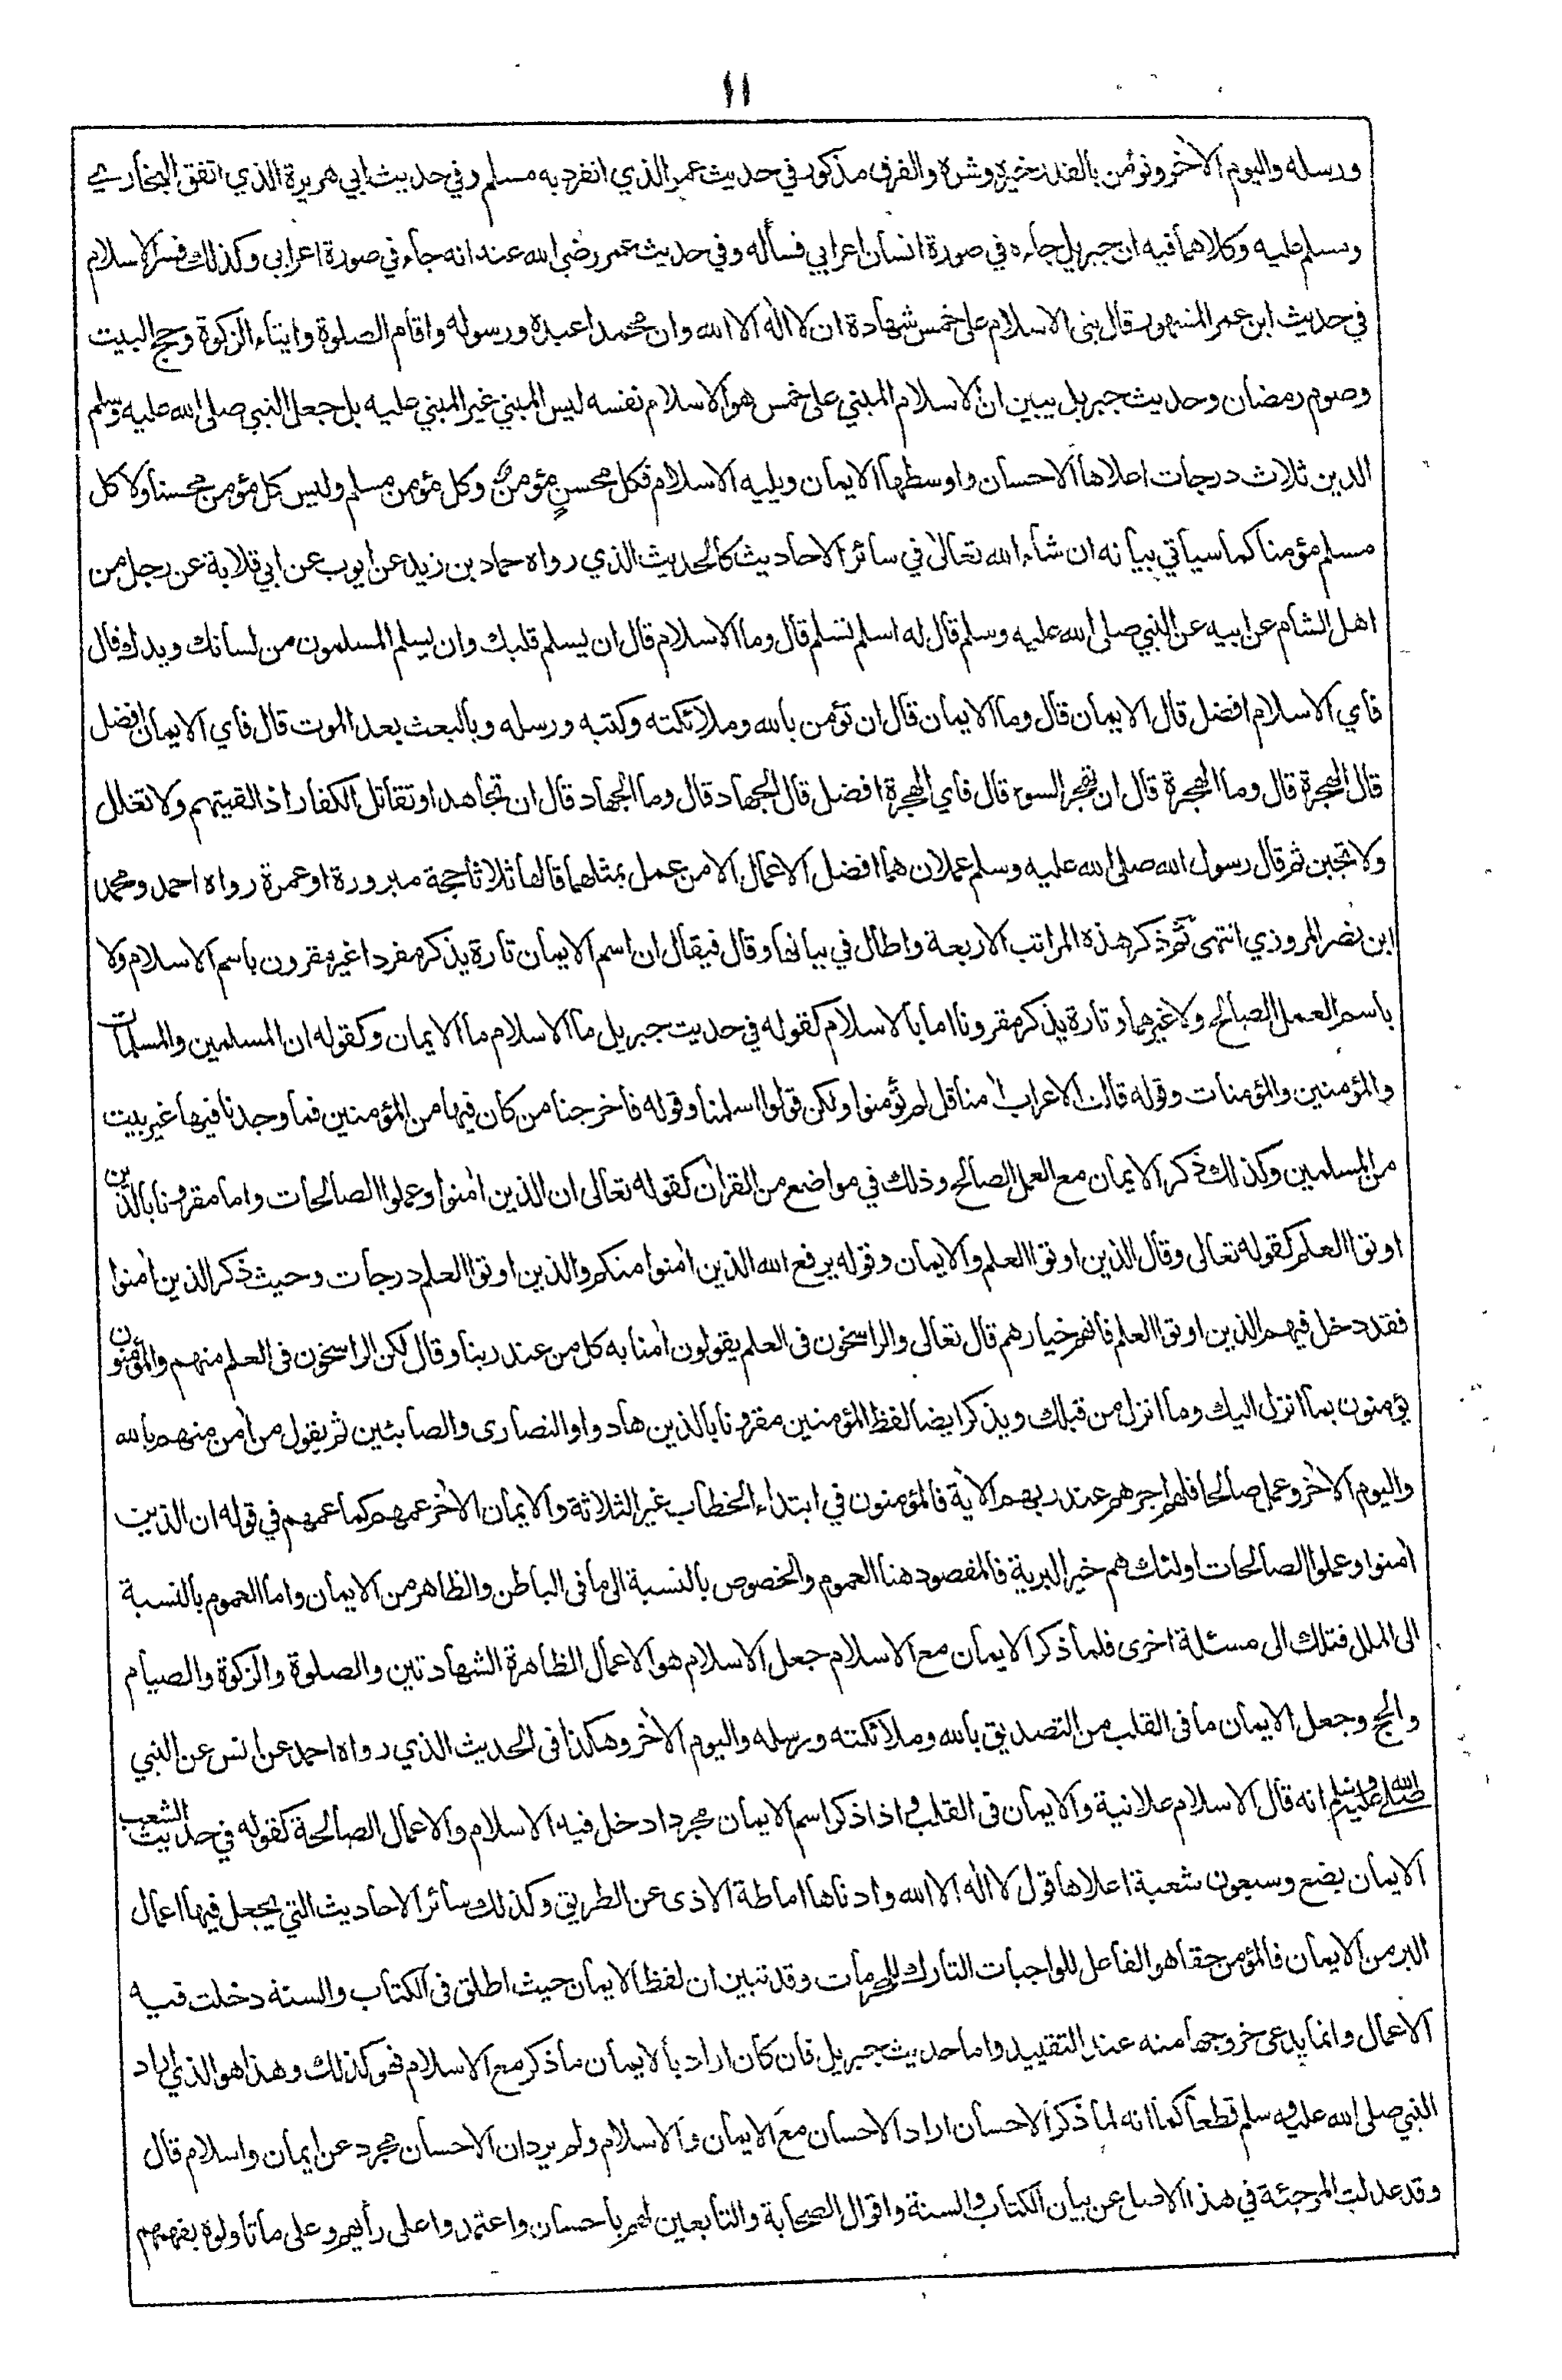 ١١
ورسله واليوم الاخر ونؤمن بالقدر خيره وشره والفرق مذكور في حديث عمر الذي انفرد به مسلم وفي حديث ابي هريرة الذي اتفق البخاري
ومسلم عليه وكلاهما فيه ان جبريل جاءه في صورة انسان اعرابي فسأله وفي حديث عمر رضي الله عنه انه جاء في صورة اعرابي وكذلك فسر الاسلام
في حديث ابن عمر المشهور قال بنى الاسلام على خمس شهادة ان لا اله الا الله وان محمدا عبده ورسوله واقام الصلوة وايتاء الزكوة وحج البيت
وصوم رمضان وحديث جبريل يبين ان الاسلام المبني على خمس هو الاسلام نفسه ليس المبني غير المبني عليه بل جعل النبي صلى الله عليه وسلم
الدين ثلاث درجات اعلاها الاحسان واوسطها الايمان ويليه الاسلام فكل محسن مؤمن وكل مؤمن مسلم وليس كل مؤمن محسنا ولا كل
مسلم مؤمنا كما سيأتي بيانه ان شاء الله تعالى في سائر الاحاديث كالحديث الذي رواه حماد بن زيد عن ايوب عن ابي قلابة عن رجل من
اهل الشام عن ابيه عن النبي صلى الله عليه وسلم قال له اسلم تسلم قال وما الاسلام قال ان يسلم قلبك وان يسلم المسلمون من لسانك ويدك قال
فأي الاسلام افضل قال الايمان قال وما الايمان قال ان تؤمن بالله وملائكته وكتبه ورسله وبالبعث بعد الموت قال فأي الايمان افضل
قال الهجرة قال وما الهجرة قال ان تهجر السوء قال فأي الهجرة افضل قال الجهاد قال وما الجهاد قال ان تجاهد او تقاتل الكفار اذا لقيتهم ولا تغلل
ولا تجبن ثم قال رسول الله صلى الله عليه وسلم عملان هما افضل الاعمال الا من عمل بمثلهما قالها ثلاثا حجة مبرورة او عمرة رواه احمد ومحمد
ابن نصر المروزي انتهى ثم ذكر هذه المراتب الاربعة واطال في بيانها وقال فيقال ان اسم الايمان تارة يذكر مفردا غير مقرون باسم الاسلام ولا
باسم العمل الصالح ولا غيرهما وتارة يذكر مقرونا اما بالاسلام كقوله في حديث جبريل ما الاسلام ما الايمان وكقوله ان المسلمين والمسلمات
والمؤمنين والمؤمنات وقوله قالت الاعراب امنا قل لم تؤمنوا ولكن قولوا اسلمنا وقوله فاخرجنا من كان فيها من المؤمنين فما وجدنا فيها غير بيت
من المسلمين وكذلك ذكر الايمان مع العمل الصالح وذلك في مواضع من القران كقوله تعالى ان الذين امنوا وعملوا الصالحات واما مقرونا بالذين
اوتوا العلم كقوله تعالى وقال الذين اوتوا العلم والايمان وقوله يرفع الله الذين امنوا منكم والذين اوتوا العلم درجات وحيث ذكر الذين امنوا
فقد دخل فيهم الذين اوتوا العلم فانهم خيارهم قال تعالى والراسخون في العلم يقولون امنا به كل من عند ربنا وقال لكن الراسخون في العلم منهم والمؤمنون
يؤمنون بما انزل اليك وما انزل من قبلك ويذكر ايضا لفظ المؤمنين مقرونا بالذين هادوا والنصارى والصابئين ثم يقول من امن منهم بالله
واليوم الاخر وعمل صالحا فلهم اجرهم عند ربهم الاية فالمؤمنون في ابتداء الخطاب غير الثلاثة والايمان الاخر عمهم كما عمهم في قوله ان الذين
امنوا وعملوا الصالحات اولئك هم خير البرية فالمقصود هنا العموم والخصوص بالنسبة الى ما في الباطن والظاهر من الايمان واما العموم بالنسبة
الى الملل فتلك الى مسئلة اخرى فلما ذكر الايمان مع الاسلام جعل الاسلام هو الاعمال الظاهرة الشهادتين والصلوة والزكوة والصيام
والحج وجعل الايمان ما في القلب من التصديق بالله وملائكته ورسله واليوم الاخر وهكذا في الحديث الذي رواه احمد عن انس عن النبي
صلى الله عليه وسلم انه قال الاسلام علانية والايمان في القلب واذا ذكر اسم الايمان مجردا دخل فيه الاسلام والاعمال الصالحة كقوله في حديث الشعب
الايمان بضع وسبعون شعبة اعلاها قول لا اله الا الله وادناها اماطة الاذى عن الطريق وكذلك سائر الاحاديث التي يجعل فيها اعمال
البر من الايمان فالمؤمن حقا هو الفاعل للواجبات التارك للمحرمات وقد تبين ان لفظ الايمان حيث اطلق في الكتاب والسنة دخلت فيه
الاعمال وانما يدعى خروجها منه عند التقييد واما حديث جبريل فان كان اراد بالايمان ما ذكر مع الاسلام فهو كذلك وهذا هو الذي اراد
النبي صلى الله عليه وسلم قطعا كما انه لما ذكر الاحسان اراد الاحسان مع الايمان والاسلام ولم يرد ان الاحسان مجرد عن ايمان واسلام قال
وقد عدلت المرجئة في هذا عن بيان الكتاب والسنة واقوال الصحابة والتابعين لهم باحسان واعتمدوا على رأيهم وعلى ما تأولوه بفهمهم